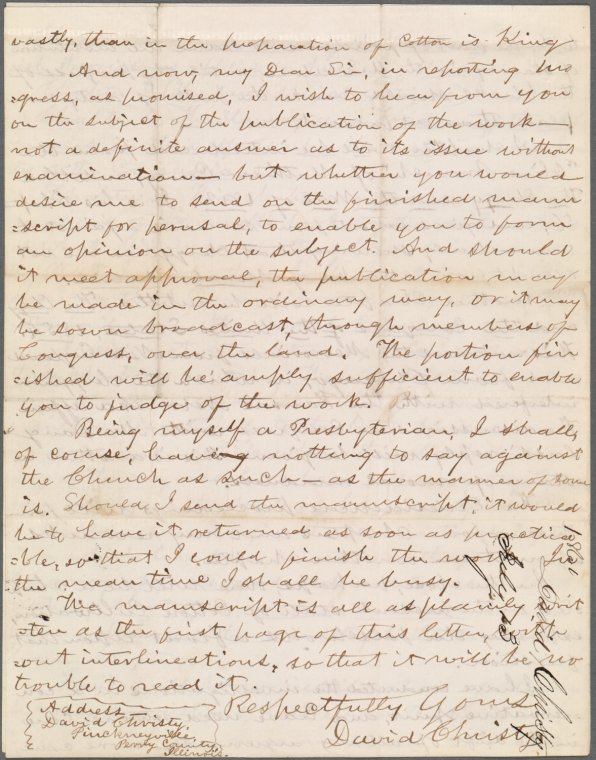 vastly, than in the preparation of Cotton is King
And now, my Dear Sir, in reporting pro
=gress, as promised, I wish to hear from you
on the subject of the publication of the work—
not a definite answer as to its issue without
examination— but whether you would
desire me to send on the finished manu
=script for perusal, to enable you to form
an opinion on the subject. And should
it meet approval, the publication may
be made in the ordinary way, or it may
be sown broadcast, through members of
Congress, over the land. The portion fin
=ished will be amply sufficient to enable
you to judge of the work.
Being myself a Presbyterian, I shall,
of course, having nothing to say against
the Church as such— as the manner of some
is. Should I send the manuscript, it would
be to have it returned as soon as practica
=ble, so that I could finish the work. In
the mean time I shall be busy.
The manuscript is all as plainly writ
=ten as the first page of this letter, with
=out interlineations, so that it will be no
trouble to read it.
Respectfully Yours
David Christy
Address—
David Christy,
Pinckneyville,
Perry County,
Illinois.
David Christy
1861